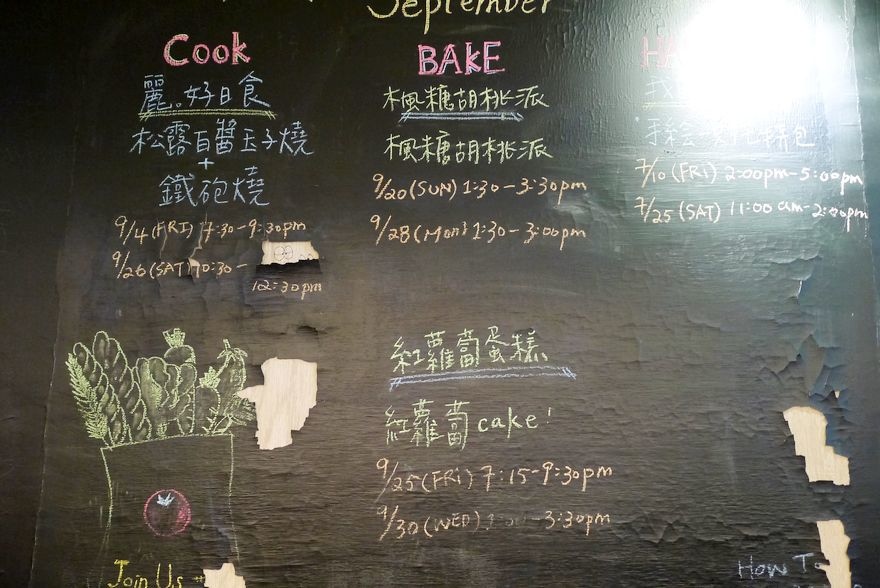 September
Cook
麗。好日食
松露百醬玉子燒
+
鐵砲燒
9/4 (FRI) 7:30-9:30pm
9/26 (SAT) 10:30-
12:30pm
BAKE
楓糖胡桃派
楓糖胡桃派
9/20 (SUN) 1:30-3:30pm
9/28 (Mon) 1:30-3:00pm
紅蘿蔔蛋糕
紅蘿蔔 cake!
9/25 (FRi) 7:15-9:30pm
9/30 (WED) -3:30pm
7/10 (FRI) 2:00pm-5:00pm
7/25 (SAT) 11:00am-2:00pm
Join Us
How To